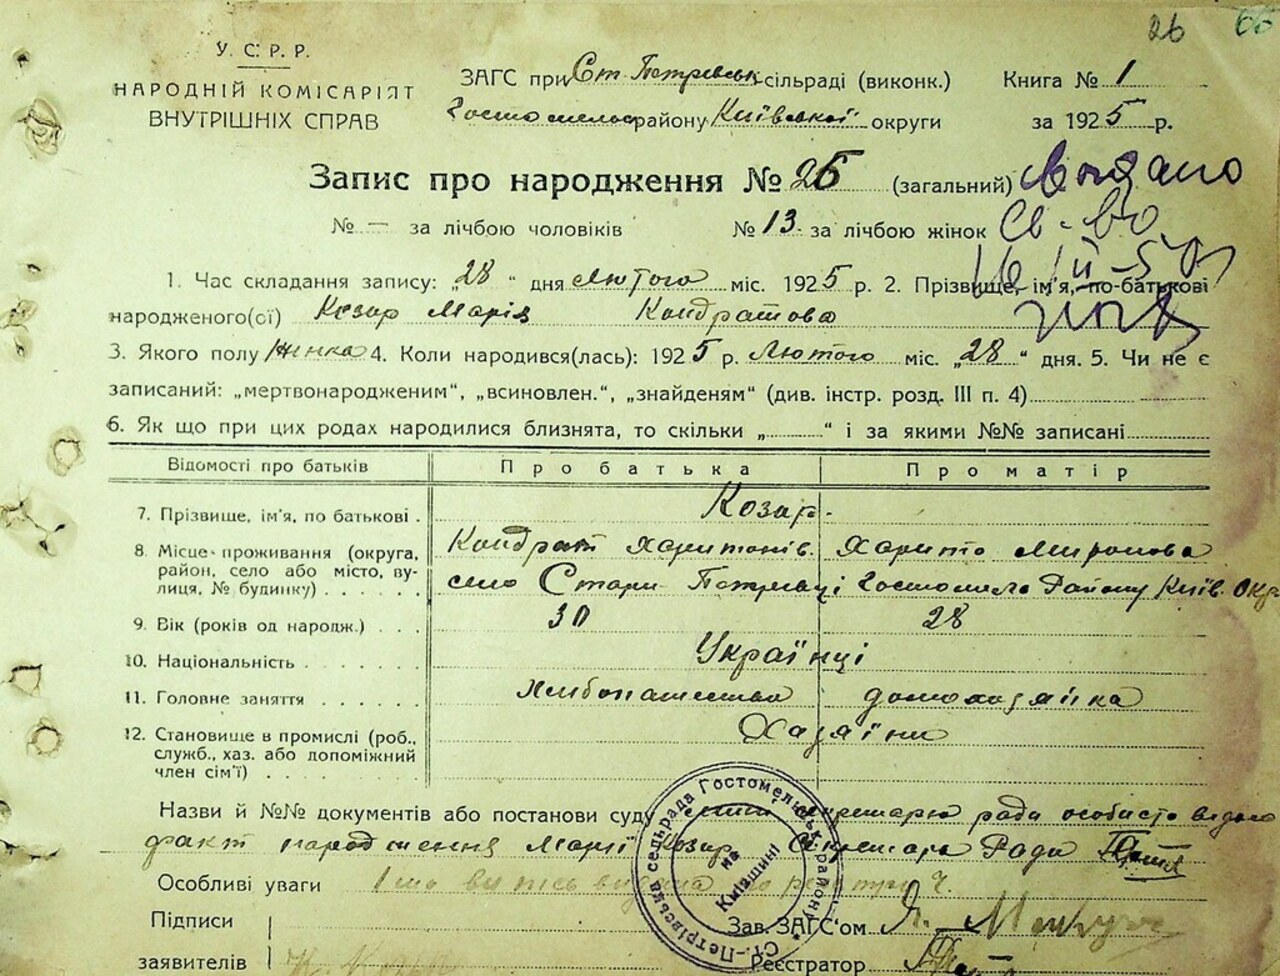 26 66
У. С. Р. Р.
НАРОДНІЙ КОМІСАРІЯТ
ВНУТРІШНІХ СПРАВ
ЗАГС при Ст. Петрівськ сільраді (виконк.) Книга № 1
району Київської округи за 1925 р.
Запис про народження № 26 (загальний) Видано
№ — за лічбою чоловіків № 13. за лічбою жінок Св-во
1. Час складання запису: „28“ дня Лютого міс. 1925 р. 2. Прізвище, ім'я, по-батькові
народженого(ої) Козар Марія Кондратова
3. Якого полу Жінка 4. Коли народився(лась): 1925 р. Лютого міс. „28“ дня. 5. Чи не є
записаний: „мертвонародженим“, „всиновлен.“, „знайденям“ (див. інстр. розд. III п. 4)
6. Як що при цих родах народилися близнята, то скільки „ “ і за якими №№ записані
Відомості про батьків Про батька Про матір
7. Прізвище, ім'я, по батькові . Козар.
Кондрат Харитонів. Миронова
8. Місце проживання (округа, район, село або місто, вулиця, № будинку)
село Стари Петрівці Району Київ. Окр
9. Вік (років од народж.) . . . 30 28
10. Національність Українці
11. Головне заняття Хлібопашество домохазяйка
12. Становище в промислі (роб., Хазяїни
служб., хаз. або допоміжний
член сім'ї)
Назви й №№ документів або постанови суду секретарю ради особисто
факт народження Марії Козар Секретарь Ради
Особливі уваги
Підписи
заявителів
Зав. ЗАГС'ом
Реєстратор
Ст.-Петрівська сельрада Гостомельськ. району
на Київщині